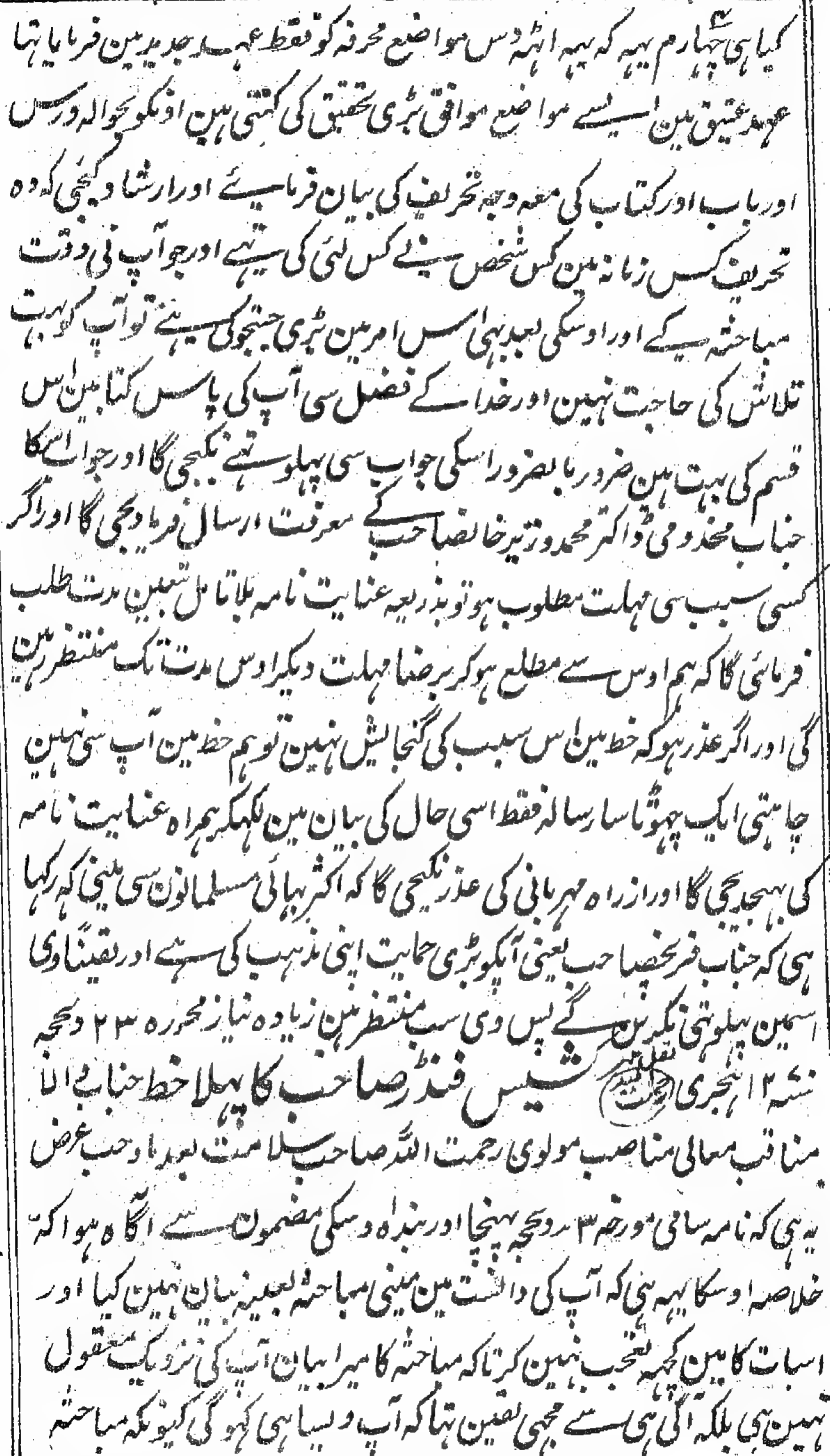 کیا ہی چہارم یہہ کہ یہہ اٹہہ دس مواضع محرفہ کو فقط عہد جدید مین فرمایا تہا
عہد عتیق مین ایسے مواضع موافق بڑی تحقیق کی کتنی ہین اونکو بحوالہ ورس
اور باب اور کتاب کی معہ وجہ تحریف کی بیان فرمایئے اور ارشاد کیجی کہ وہ
تحریف کس زمانہ مین کس شخص نے کس لئی کی ہے اور جو آپ نی وقت
مباحثہ کے اور اوسکی بعد بہی اس امر مین بڑی جستجو کی ہے تو آپ کو بہت
تلاش کی حاجت نہین اور خدا کے فضل سی آپ کی پاس کتابین اس
قسم کی بہت ہین ضرور بالضرور اسکی جواب سی پہلو تہے نکیجی گا اور جواب اسکا
جناب مخذومی ڈاکتر محمد وزیر خانصاحب کے معرفت ارسال فرما دیجی گا اور اگر
کسی سبب سی مہلت مطلوب ہو تو بذریعہ عنایت نامہ بلا تامل تعین مدت طلب
فرمائی گا کہ ہم اوس سے مطلع ہو کر برضا مہلت دیکر اوس مدت تک منتظر رہین
گی اور اگر عذر ہو کہ خط مین اس سبب کی گنجایش نہین تو ہم خط مین آپ سی نہین
چاہتی ایک چہوٹا سا رسالہ فقط اسی حال کی بیان مین لکہکر ہمراہ عنایت نامہ
کی بہیجدیجی گا اور از راہ مہربانی کی عذر نکیجی گا کہ اکثر بہائی مسلمانون سی مینی کہ رکہا
ہی کہ جناب فریخصاحب یعنی آپکو بڑی حمایت اپنی مذہب کی ہے اور یقیناً وی
اسمین پہلو تہی نکرین گے پس وی سب منتظر ہین زیادہ نیاز محررہ ۲۳ ذیحجہ
ہجری کشیس فنڈر صاحب کا پہلا خط جناب والا
مناقب معالی مناصب مولوی رحمت اللہ صاحب سلامت بعد ما وجب عرض
یہ ہی کہ نامہ سامی مورخہ ۲۳ ذیحجہ پہنچا اور بندہ اوسکی مضمون سے آگاہ ہوا کہ
خلاصہ اوسکا یہہ ہی کہ آپ کی دانست مین مینی مباحثہ بعینہ بیان نہین کیا اور
اسبات کا مین کچہہ تعجب نہین کرتا کہ مباحثہ کا میرا بیان آپ کی نزدیک معقول
نہین ہی بلکہ آگی ہی سے مجہی یقین تہا کہ آپ ویسا ہی کہو گی کیونکہ مباحثہ